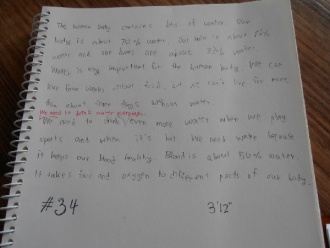 The human body contains lots of water. Our
body is about 70% water. Our skin is about
water and our bones are about 22% water.
Water is very important for the human body. We can
live four weeks without food, but we can't live for more
than about three days without water.
We need to drink water everyday.
We need to drink even more water when we play
sports and when it's hot. We need water because
it keeps our blood healthy. Blood is about water.
It takes food and oxygen to different parts of our body.
#34 3'12"